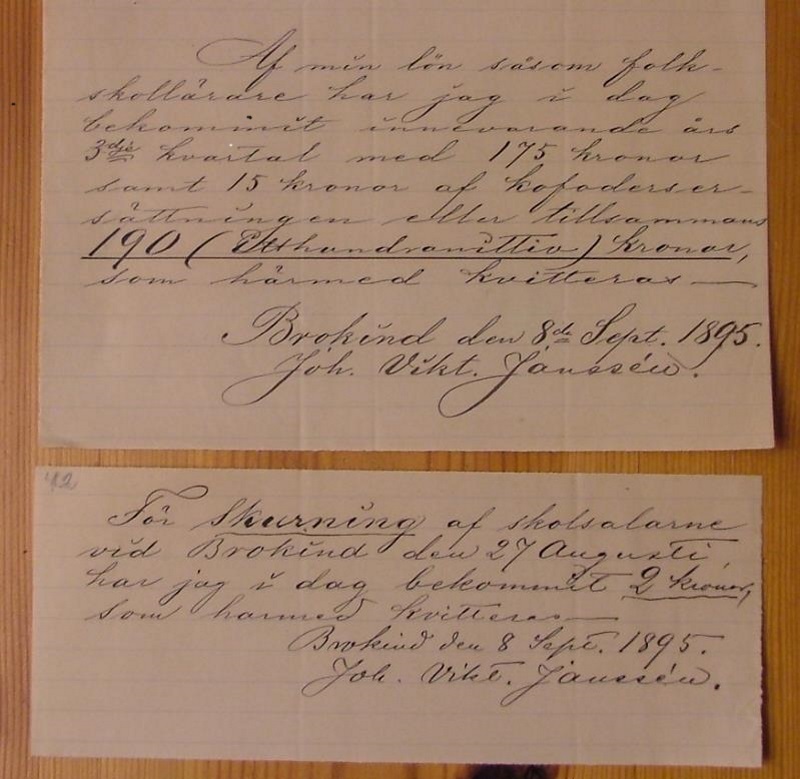 Af min lön såsom folk-
skollärare har jag i dag
bekommit innevarande års
3dje kvartal med 175 kronor
samt 15 kronor af kofodersers-
sättningen eller tillsammans
190 (Etthundranittio) kronor,
som härmed kvitteras —
Brokind den 8de Sept. 1895.
Joh. Vikt. Janssén.
42
För Skurning af skolsalarne
vid Brokind den 27 Augusti,
har jag i dag bekommit 2 kronor,
som harmed kvitteras —
Brokind den 8 Sept. 1895.
Joh. Vikt. Janssén.